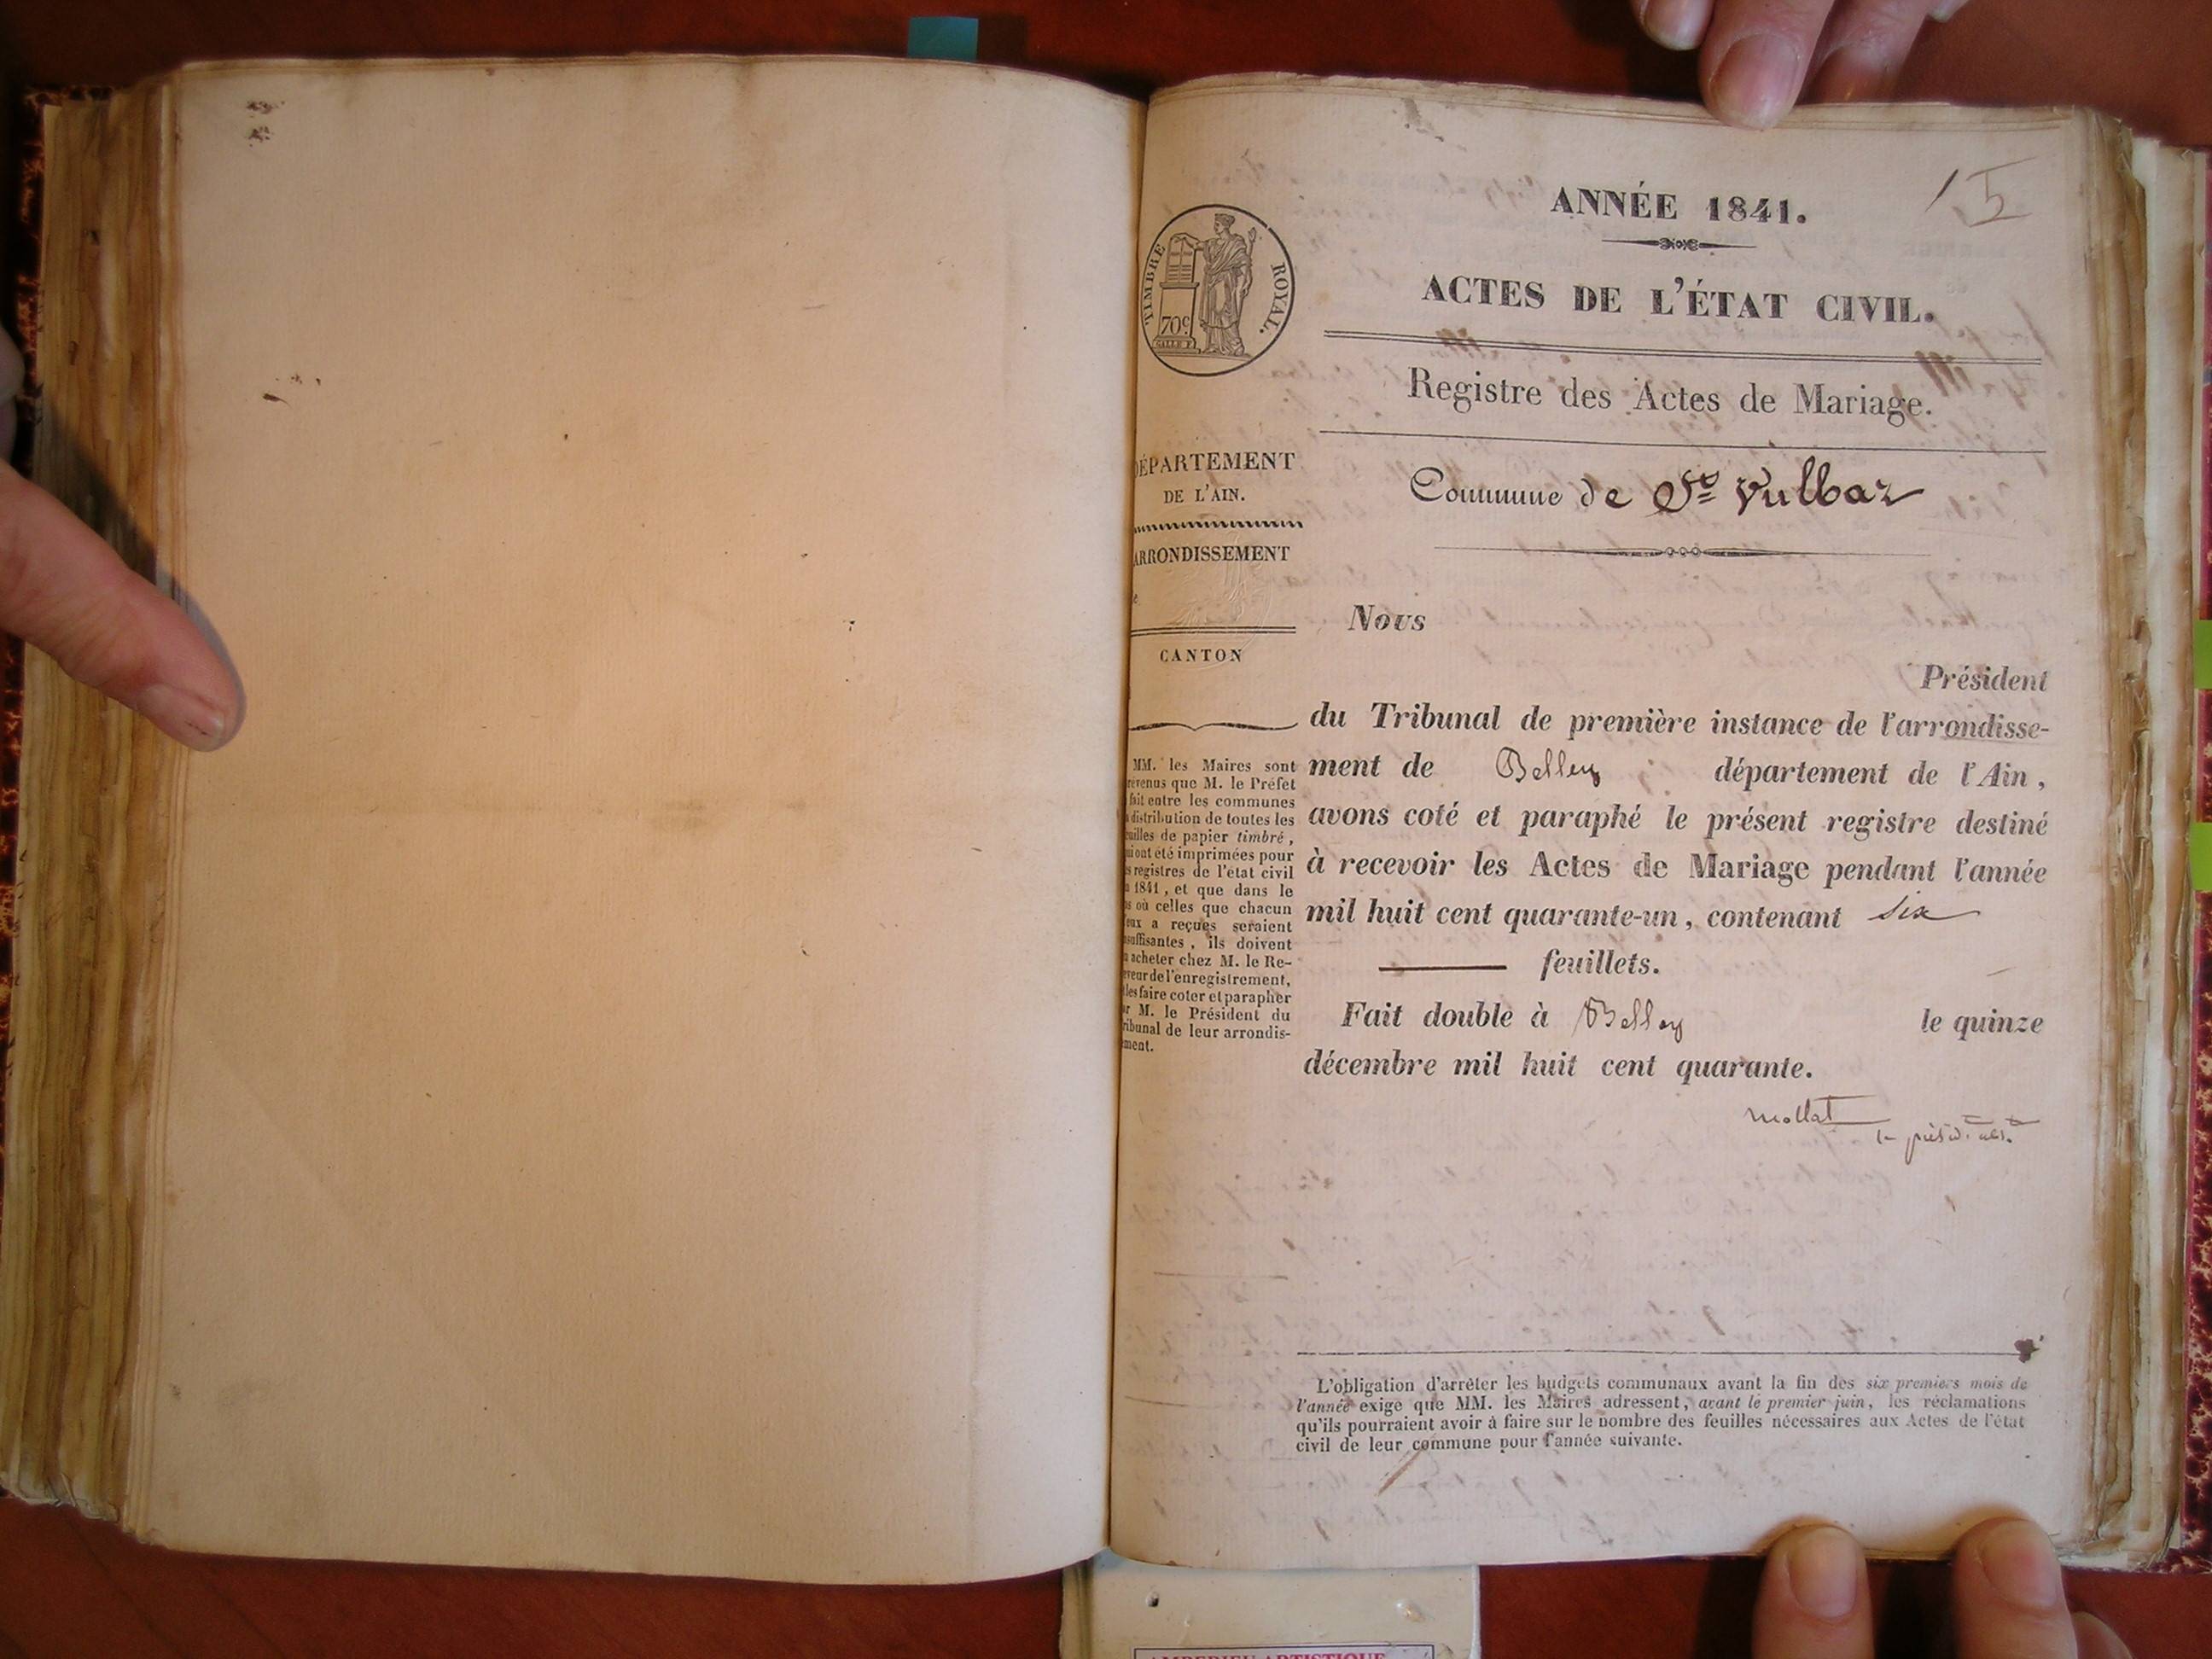 ANNÉE 1841.
15
ACTES DE L'ÉTAT CIVIL.
TIMBRE ROYAL.
70c
Registre des Actes de Mariage.
DÉPARTEMENT
DE L'AIN.
ARRONDISSEMENT
CANTON
Commune de St Vulbaz
Nous
Président
du Tribunal de première instance de l'arrondisse-
ment de Belley département de l'Ain,
avons coté et paraphé le présent registre destiné
à recevoir les Actes de Mariage pendant l'année
mil huit cent quarante-un, contenant six
feuillets.
Fait double à Belley le quinze
décembre mil huit cent quarante.
mollat
MM. les Maires sont
révenus que M. le Préfet
fait entre les communes
distribution de toutes les
uilles de papier timbré,
ui ont été imprimées pour
s registres de l'état civil
1841, et que dans le
s où celles que chacun
eux a reçues seraient
suffisantes, ils doivent
acheter chez M. le Re-
eveur de l'enregistrement,
les faire coter et parapher
r M. le Président du
ribunal de leur arrondis-
ment.
L'obligation d'arrêter les budgets communaux avant la fin des six premiers mois de
l'année exige que MM. les Maires adressent, avant le premier juin, les réclamations
qu'ils pourraient avoir à faire sur le nombre des feuilles nécessaires aux Actes de l'état
civil de leur commune pour l'année suivante.
AMBERIEU ARTISTIQUE